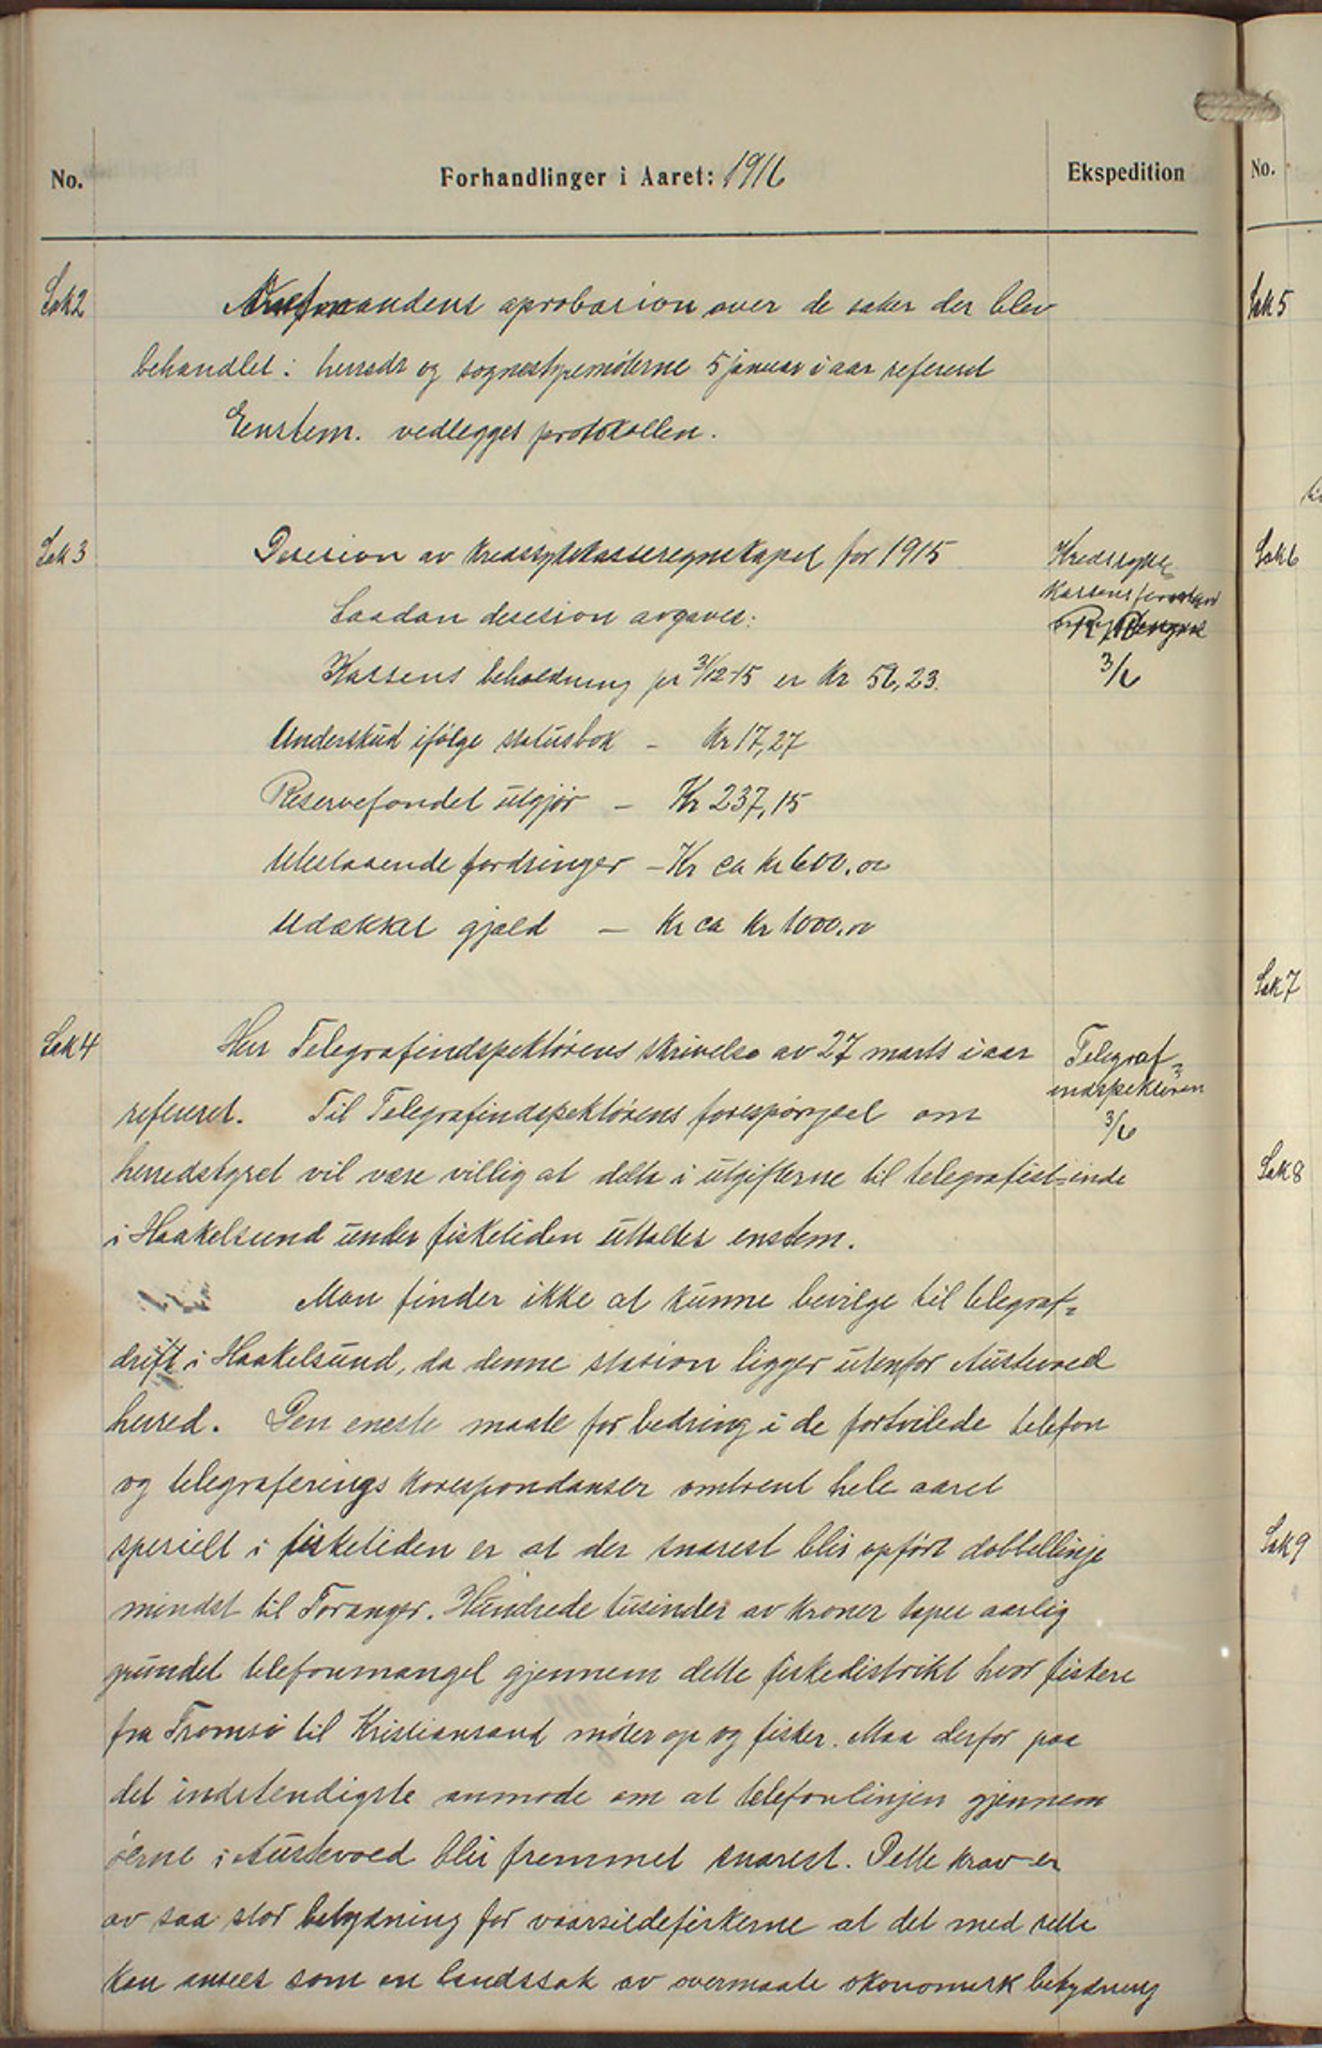 No.
Forhandlinger i Aaret: 1916
Ekspedition
No.
Sak 2
Amtmandens aprobasion over de saker der blev
behandlet i herreds og sognestyremøterne 5 januar i aar referert
Eenstem. vedlegges protokollen.
Sak 3
Desision av kredssykekasseregnskapet for 1915
Saadan desision avgaves:
Kassens beholdning pr 31/12-15 er Kr 56,23.
Underskud ifølge statusbok - Kr 17,27
Reservefondet utgjør - Kr 237,15
Utestaaende fordringer - Kr ca kr 600,00
Udækket gjæld - Kr ca kr 1000,00
Kredssyke
kassens
3/6
Sak 4
Herr Telegrafindspektørens skrivelse av 27 marts i aar
refereret. Til Telegrafindspektørens forespørgsel om
herredstyret vil være villig at delta i utgifterne til telegrafist-inde
i Haakelsund under fisketiden uttaltes enstem.
Man finder ikke at kunne bevilge til telegraf=
drift i Haakelsund, da denne stasion ligger utenfor Austevoll
herred. Den eneste maate for bedring i de fortvilede telefon
og telegraferings korespondanser omtrent hele aaret
spesielt i fisketiden er at der snarest blir opført dobbellinje
mindst til Toranger. Hundrede tusinder av kroner tapes aarlig
grundet telefonmangel gjennem dette fiskedistrikt hvor fiskere
fra Tromsø til Kristiansand møter op og fisker. Maa derfor paa
det indstendigste anmode om at telefonlinjen gjennem
øerne i Austevoll blir fremmet snarest. Dette krav er
av saa stor betydning for vaarsildefiskerne at det med rette
kan ansees som en landssak av overmaate økonomisk betydning
Telegraf=
indspektøren
3/6
Sak 5
Sak 6
Sak 7
Sak 8
Sak 9